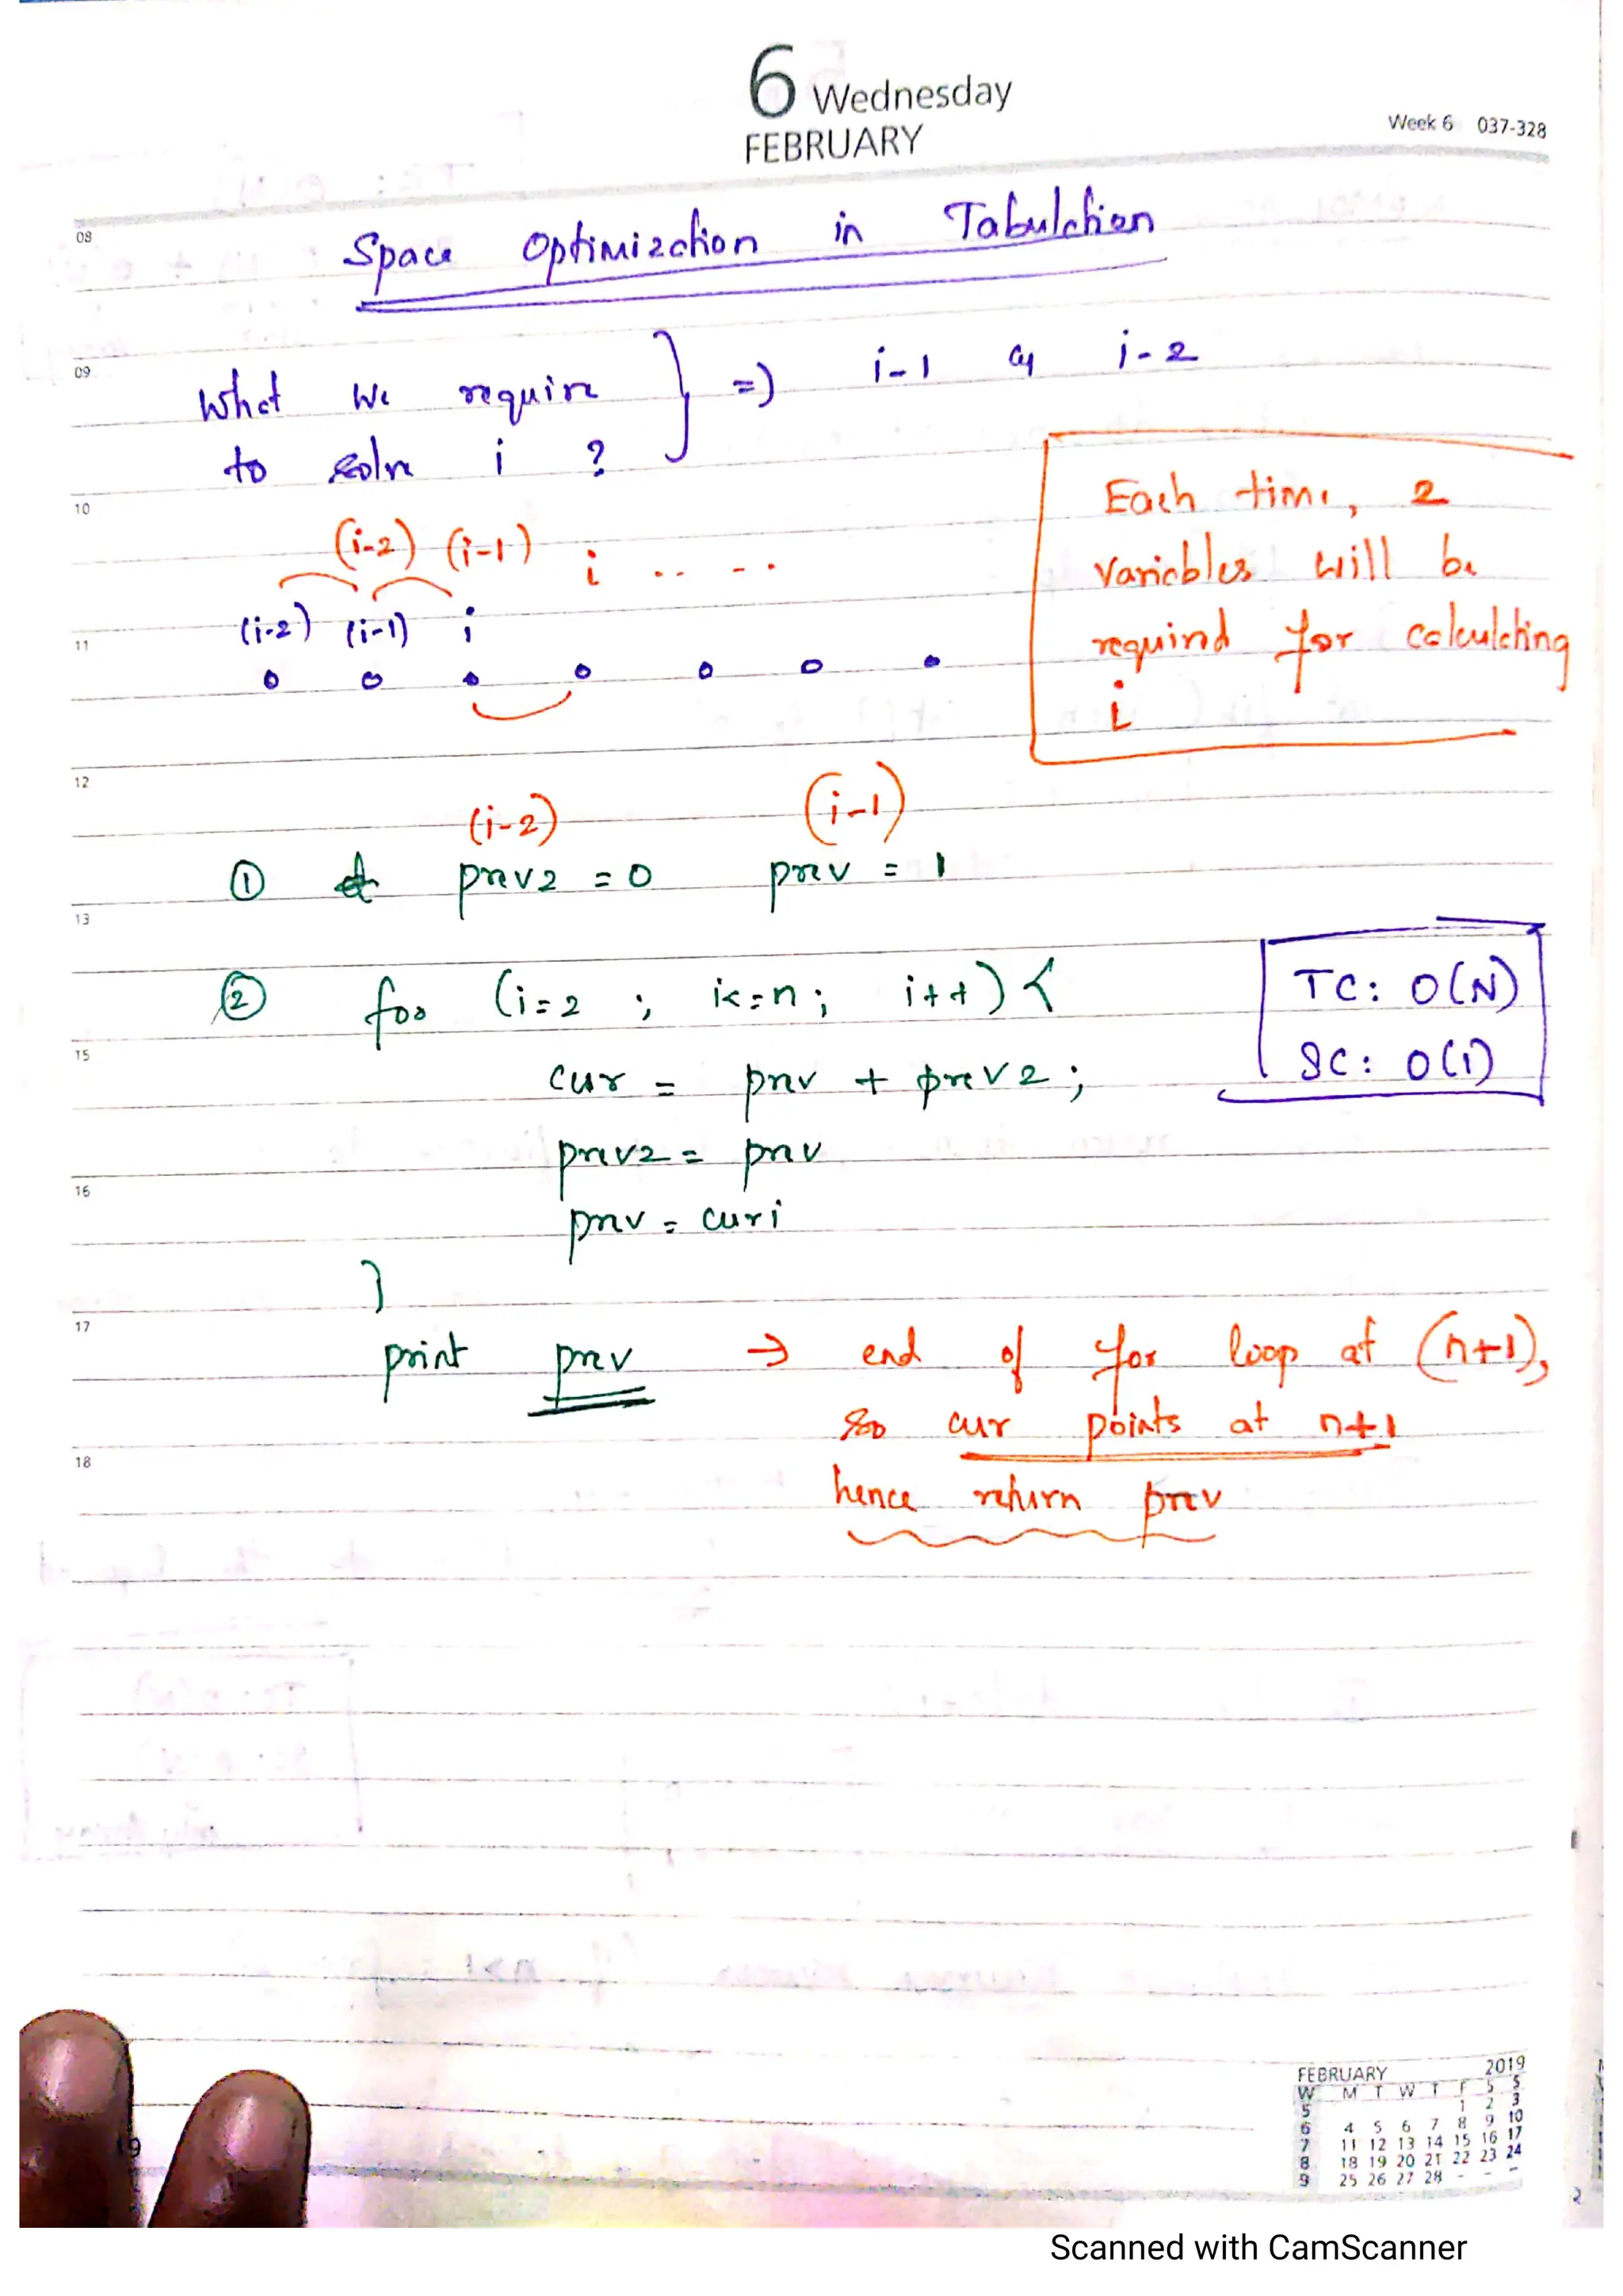 6 Wednesday
FEBRUARY
Week 6 037-328
08
Space Optimization in Tabulation
09
What we require } => i-1 & i-2
to solve i ?
10
Each time, 2
variables will be
required for calculating
i
(i-2) (i-1) i .. ..
11
(i-2) (i-1) i
12
(i-2) (i-1)
① prev2 = 0 prev = 1
13
② for (i=2 ; i<=n ; i++) {
TC: O(N)
SC: O(1)
15
cur = prev + prev2 ;
prev2 = prev
16
prev = curi
}
17
print prev → end of for loop at (n+1),
so cur points at n+1
18
hence return prev
19
FEBRUARY 2019
W M T W T F S S
5 1 2 3
6 4 5 6 7 8 9 10
7 11 12 13 14 15 16 17
8 18 19 20 21 22 23 24
9 25 26 27 28 - - -
Scanned with CamScanner